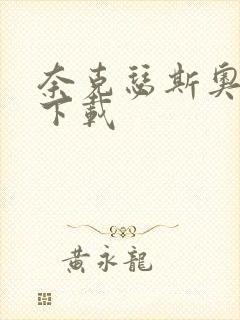 奈克瑟斯奥
下載
黄永龍